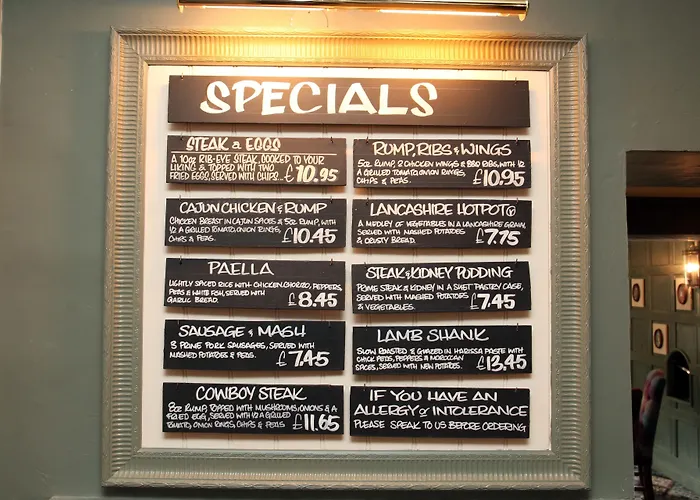 SPECIALS
STEAK & EGGS
A 10oz RIB-EYE STEAK, COOKED TO YOUR
LIKING & TOPPED WITH TWO
FRIED EGGS, SERVED WITH CHIPS... £10.95
CAJUN CHICKEN & RUMP
CHICKEN BREAST IN CAJUN SPICES & 5oz RUMP, WITH
1/2 A GRILLED TOMATO, ONION RINGS,
CHIPS & PEAS. £10.45
PAELLA
LIGHTLY SPICED RICE WITH CHICKEN, CHORIZO, PEPPERS,
PEAS & WHITE FISH, SERVED WITH
GARLIC BREAD. £8.45
SAUSAGE & MASH
3 PRIME PORK SAUSAGES, SERVED WITH
MASHED POTATOES & PEAS. £7.45
COWBOY STEAK
8oz RUMP, TOPPED WITH MUSHROOMS, ONIONS & A
FRIED EGG, SERVED WITH 1/2 A GRILLED
TOMATO, ONION RINGS, CHIPS & PEAS £11.65
RUMP, RIBS & WINGS
5oz RUMP, 2 CHICKEN WINGS & BBQ RIBS, WITH 1/2
A GRILLED TOMATO, ONION RINGS,
CHIPS & PEAS. £10.95
LANCASHIRE HOTPOT V
A MEDLEY OF VEGETABLES IN A LANCASHIRE GRAVY,
SERVED WITH MASHED POTATOES
& CRUSTY BREAD. £7.75
STEAK & KIDNEY PUDDING
PRIME STEAK & KIDNEY IN A SUET PASTRY CASE,
SERVED WITH MASHED POTATOES
& VEGETABLES. £7.45
LAMB SHANK
SLOW ROASTED & GLAZED IN HARISSA PASTE WITH
CHICK PEAS, PEPPERS & MOROCCAN
SPICES, SERVED WITH NEW POTATOES. £13.45
IF YOU HAVE AN
ALLERGY or INTOLERANCE
PLEASE SPEAK TO US BEFORE ORDERING